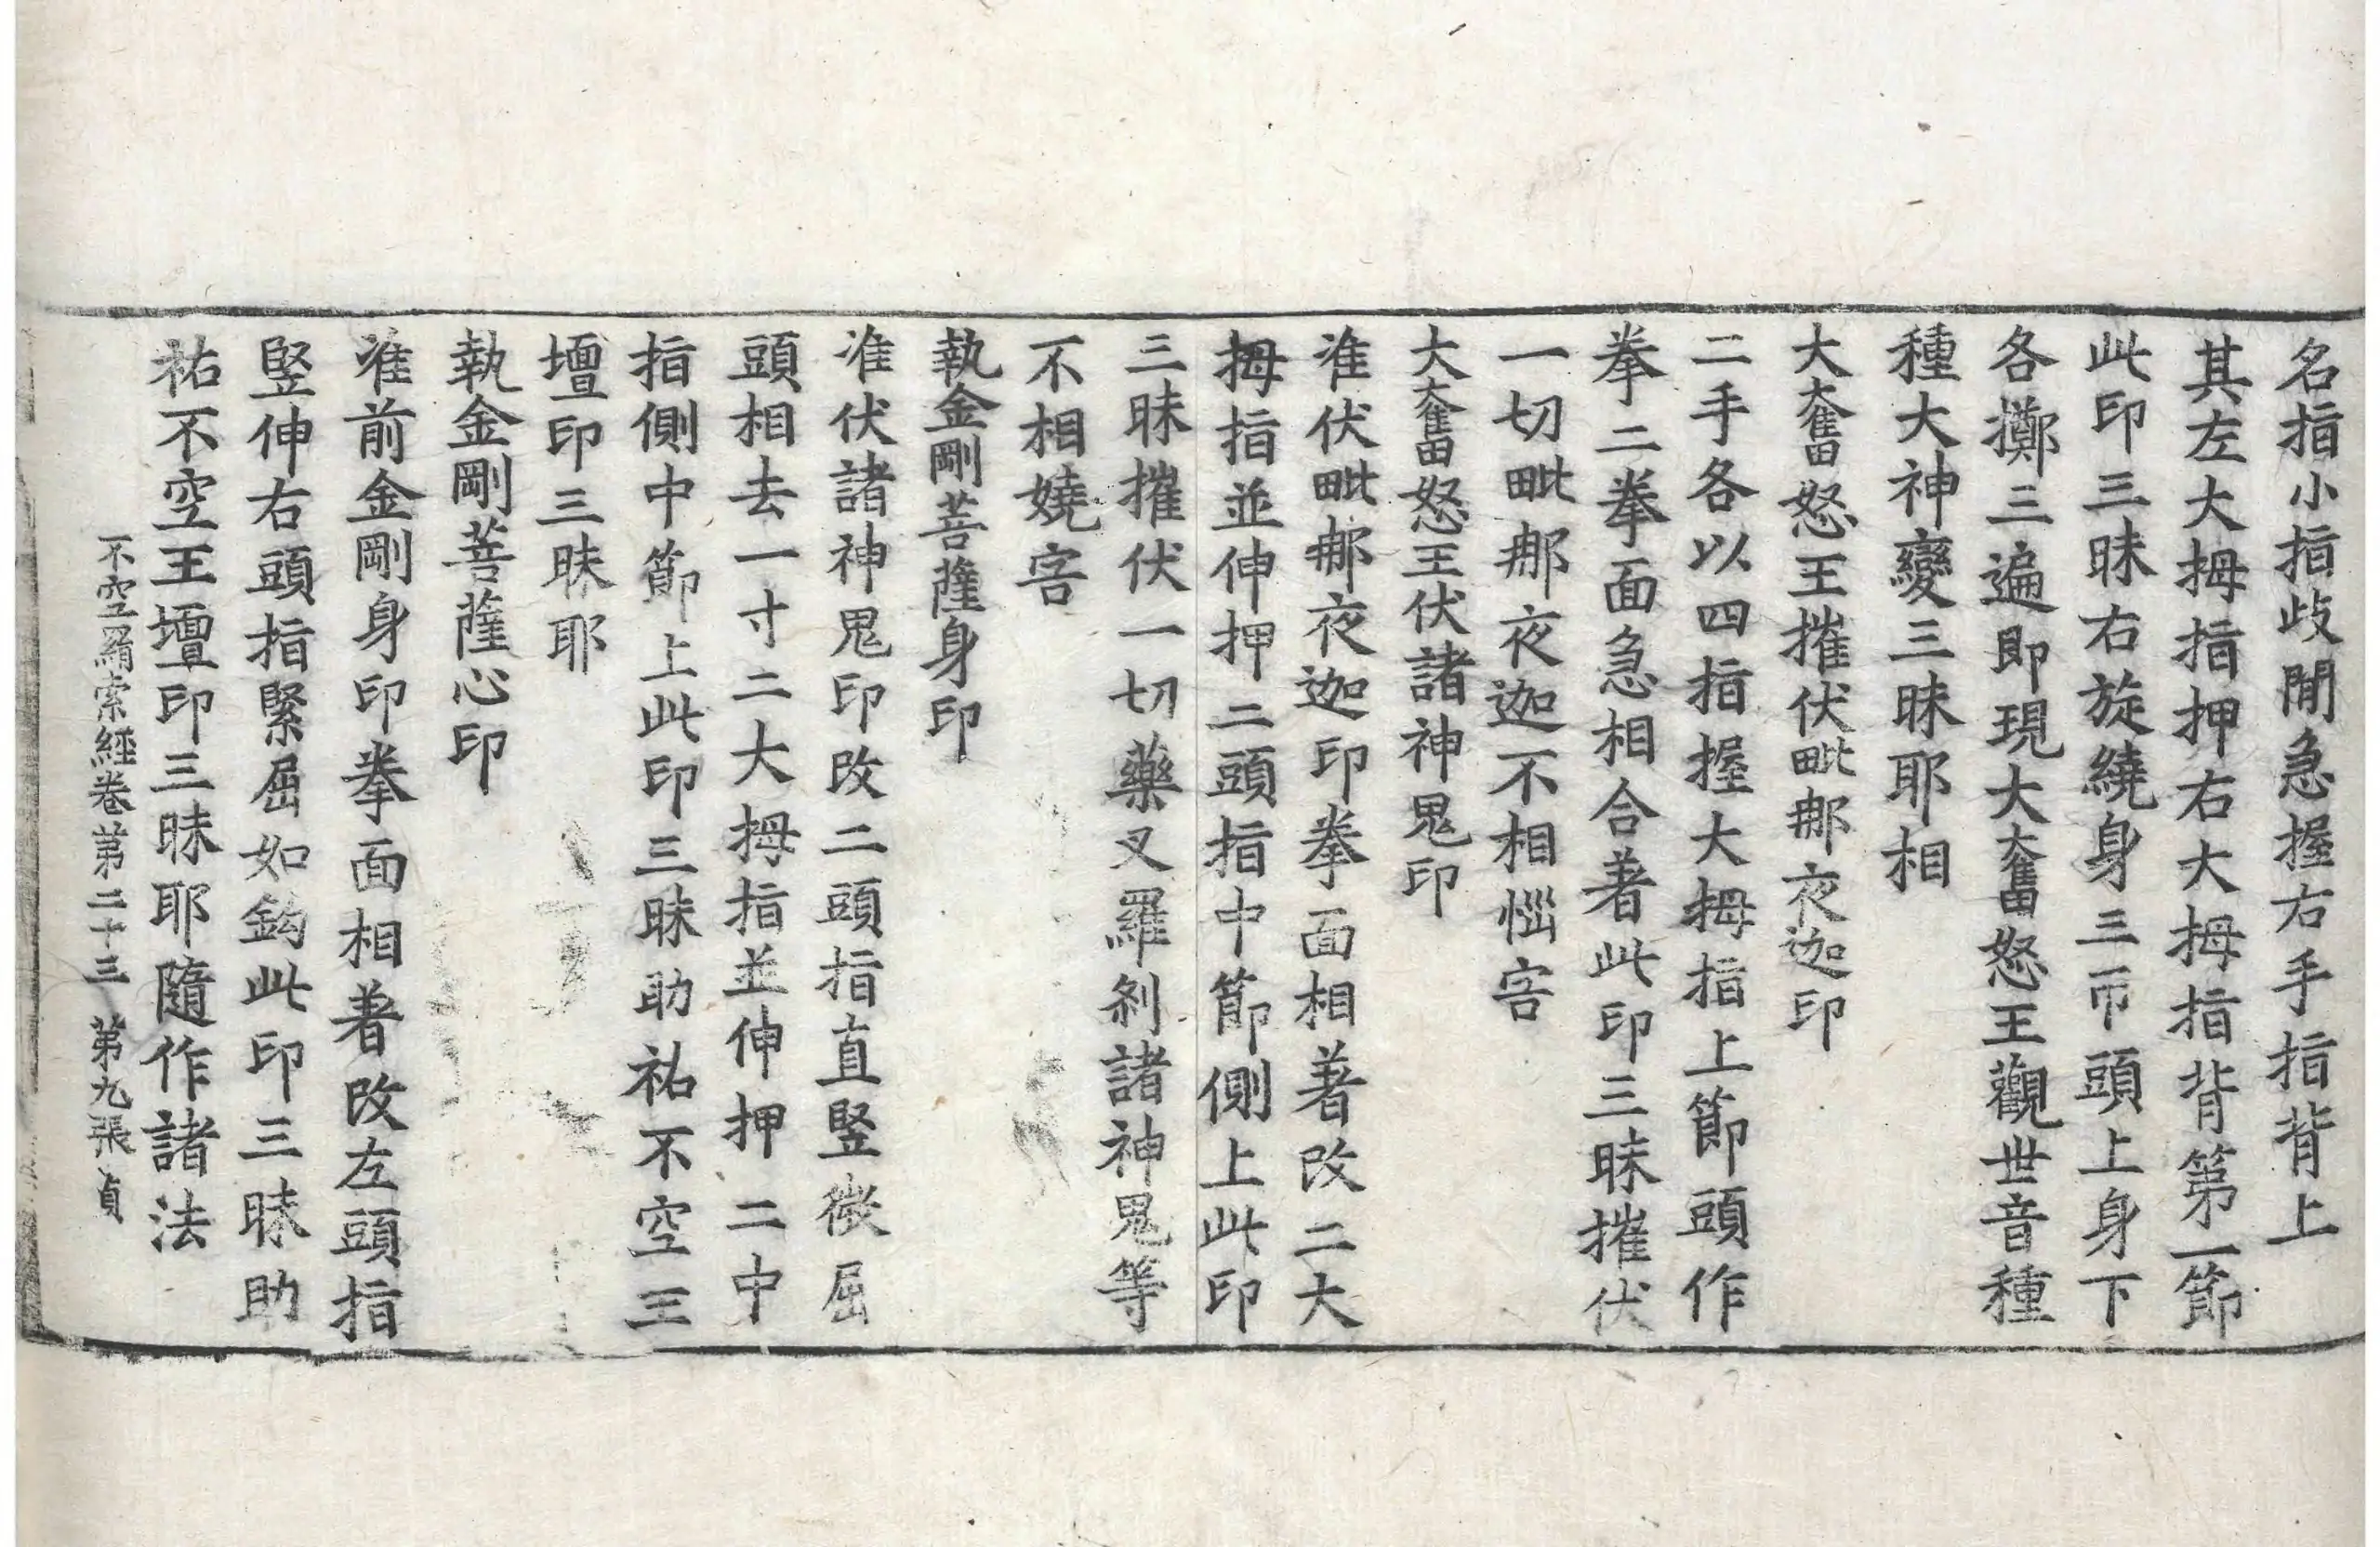 名指小指歧閒急握右手指背上
其左大拇指押右大拇指背第一節
此印三昧右旋繞身三帀頭上身下
各擲三遍即現大奮怒王觀世音種
種大神變三昧耶相
大奮怒王摧伏毗那夜迦印
二手各以四指握大拇指上節頭作
拳二拳面急相合著此印三昧摧伏
一切毗那夜迦不相惱害
大奮怒王伏諸神鬼印
准伏毗那夜迦印拳面相著改二大
拇指並伸押二頭指中節側上此印
三昧摧伏一切藥叉羅剎諸神鬼等
不相嬈害
執金剛菩薩身印
准伏諸神鬼印改二頭指直豎微屈
頭相去一寸二大拇指並伸押二中
指側中節上此印三昧助祐不空王
壇印三昧耶
執金剛菩薩心印
准前金剛身印拳面相著改左頭指
豎伸右頭指緊屈如鉤此印三昧助
祐不空王壇印三昧耶隨作諸法
不空羂索經卷第二十三 第九張 貞